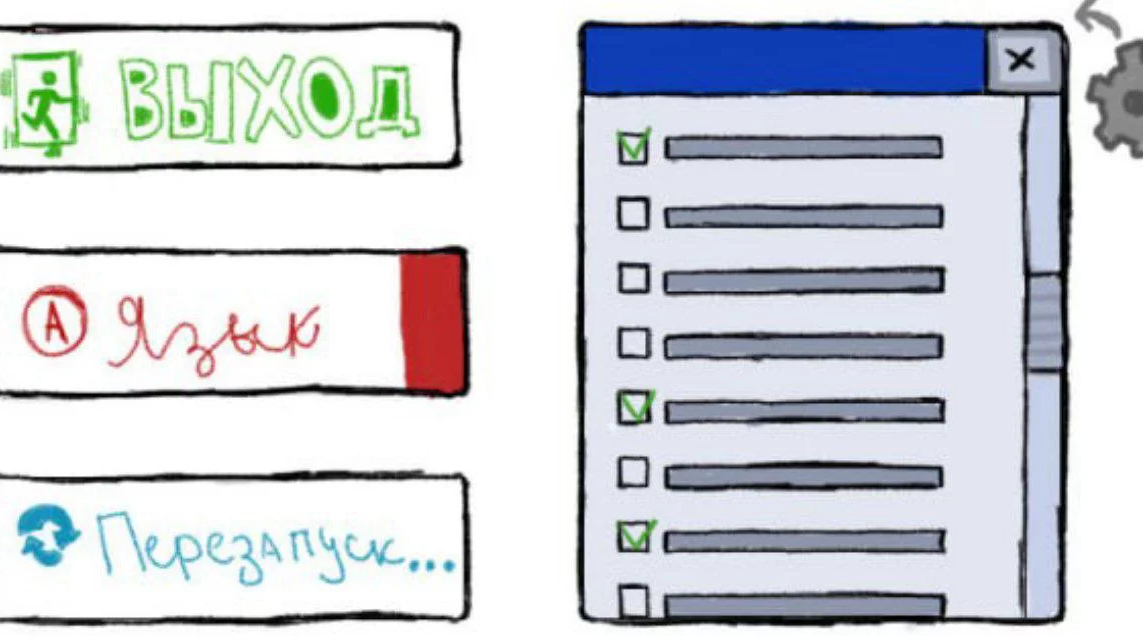 ВЫХОД
А Язык
Перезапуск...